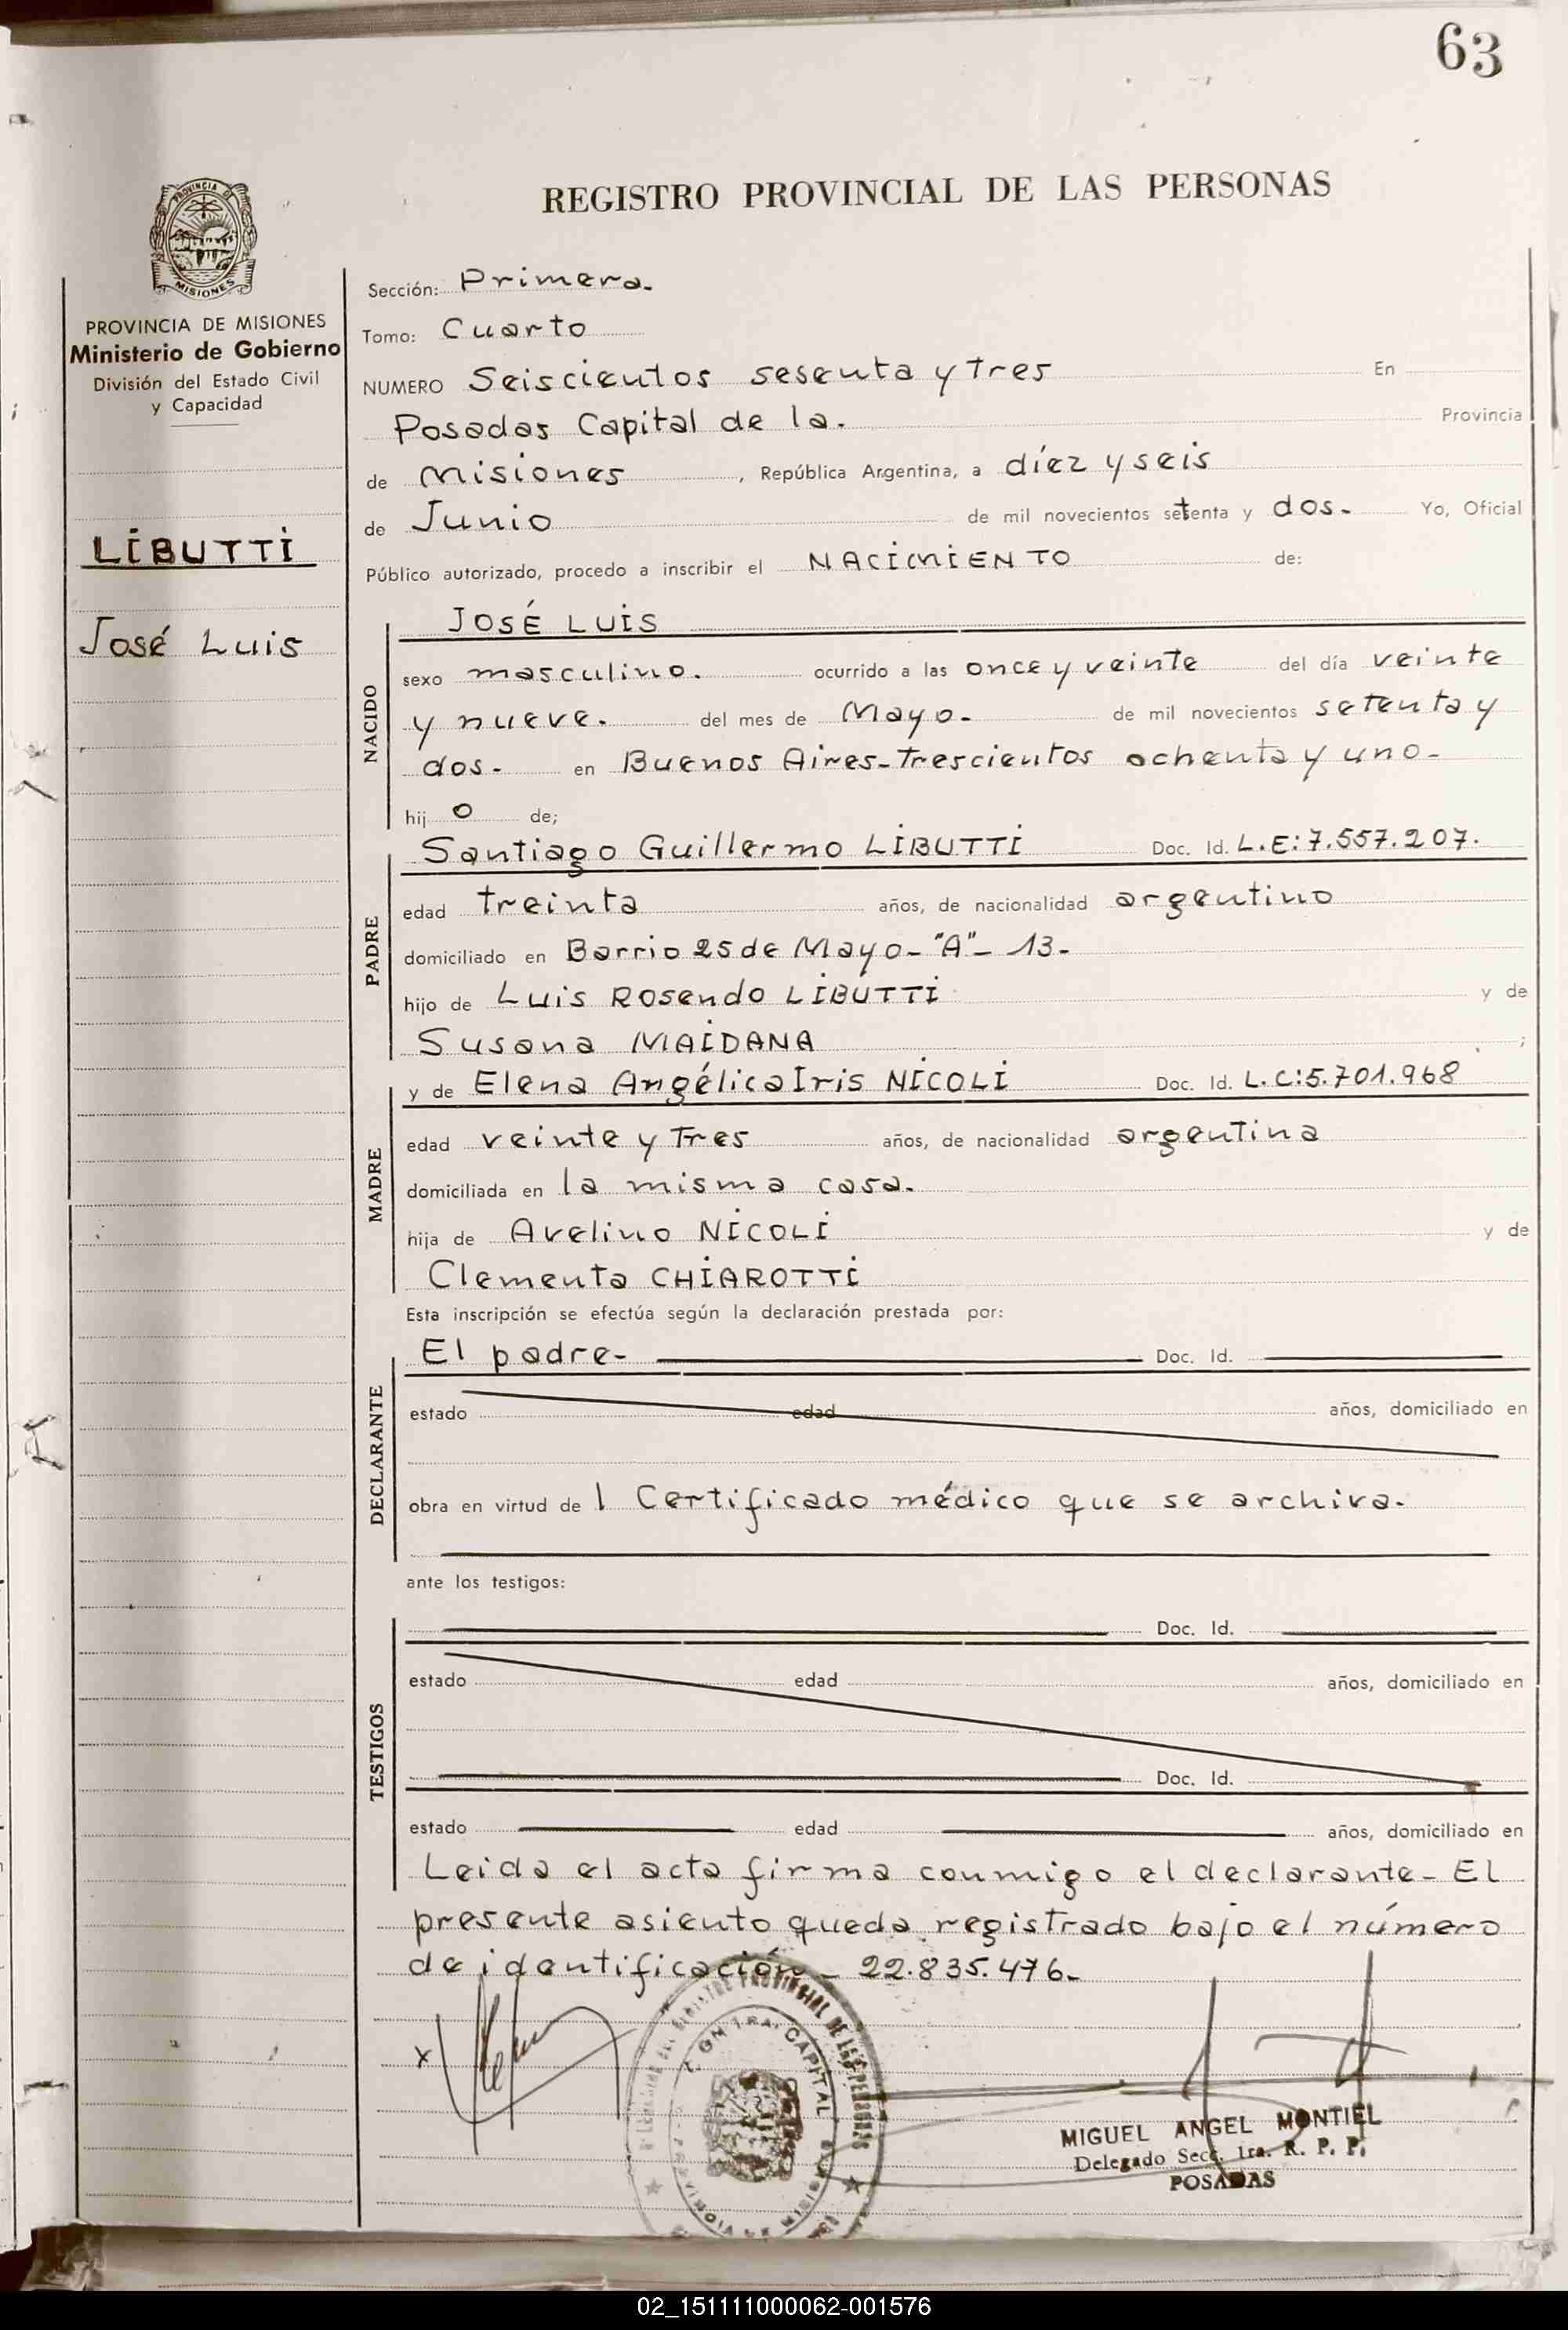 63
REGISTRO PROVINCIAL DE LAS PERSONAS
PROVINCIA DE
MISIONES
PROVINCIA DE MISIONES
Ministerio de Gobierno
División del Estado Civil
y Capacidad
LIBUTTI
José Luis
Sección: Primera.
Tomo: Cuarto
NUMERO Seiscientos sesenta y tres En
Posadas Capital de la. Provincia
de Misiones, República Argentina, a diez y seis
de Junio de mil novecientos setenta y dos. Yo, Oficial
Público autorizado, procedo a inscribir el NACIMIENTO de:
NACIDO
JOSÉ LUIS
sexo masculino. ocurrido a las once y veinte del día veinte
y nueve. del mes de Mayo. de mil novecientos setenta y
dos. en Buenos Aires-Trescientos ochenta y uno-
hij o de;
PADRE
Santiago Guillermo LIBUTTI Doc. Id. L.E:7.557.207.
edad treinta años, de nacionalidad argentino
domiciliado en Barrio 25 de Mayo-"A"- 13-
hijo de Luis Rosendo LIBUTTI y de
Susana MAIDANA ;
MADRE
y de Elena Angélica Iris NICOLI Doc. Id. L.C:5.701.968
edad veinte y tres años, de nacionalidad argentina
domiciliada en la misma casa.
hija de Avelino NICOLI y de
Clementa CHIAROTTI
Esta inscripción se efectúa según la declaración prestada por:
DECLARANTE
El padre- Doc. Id.
estado edad años, domiciliado en
obra en virtud de 1 Certificado médico que se archiva.
ante los testigos:
TESTIGOS
Doc. Id.
estado edad años, domiciliado en
Doc. Id.
estado edad años, domiciliado en
Leida el acta firma conmigo el declarante- El
presente asiento queda registrado bajo el número
de identificación- 22.835.476-
x
REGISTRO PROVINCIAL DE LAS PERSONAS
CAPITAL
PROVINCIA DE MISIONES
MIGUEL ANGEL MONTIEL
Delegado Secc. 1ra. R. P. P.
POSADAS
02_151111000062-001576